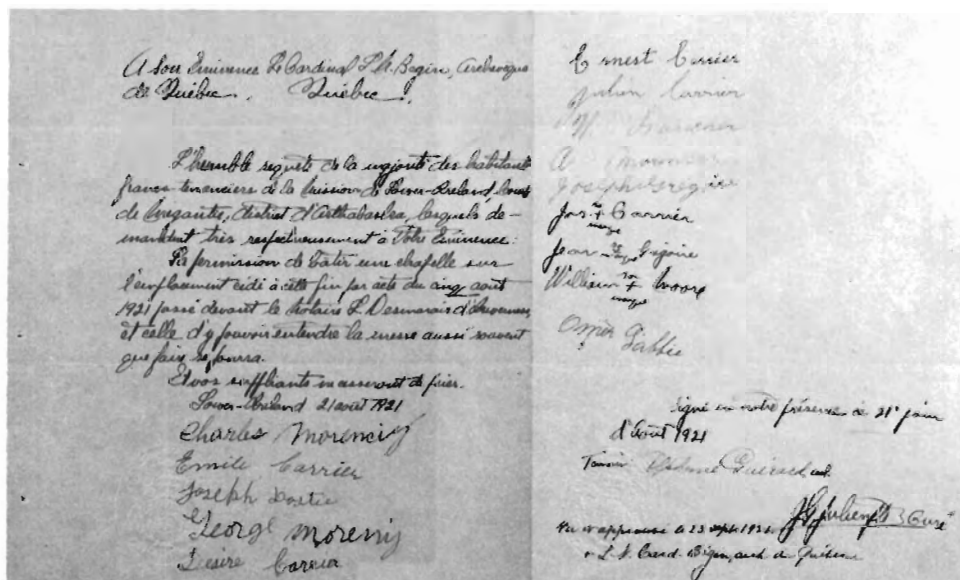 A Son Eminence Le Cardinal L.N. Bégin, Archevêque
de Québec. Québec.
L'humble requête de la majorité des habitants
francs tenanciers de la Mission de Lower-Ireland, Comté
de Mégantic, district d'Arthabaska, lesquels de-
mandent très respectueusement à Votre Eminence:
La permission de bâtir une chapelle sur
l'emplacement cédé à cette fin par acte du cinq août
1921 passé devant le Notaire L. Desmarais
et celle d'y pouvoir entendre la messe aussi souvent
que faire se pourra.
Et vos suppliants ne cesseront de prier.
Lower-Ireland 21 août 1921
Charles Morency
Emile Carrier
Joseph
George Morency
Desire
Ernest Carrier
Julien Carrier
Joseph Grégoire
Jos. + Carrier
marque
Jean Grégoire
sa
William + Moore
marque
Omer
Signé en notre présence ce 21e jour
d'Août 1921
Témoin
Curé
Vu et approuvé ce 23 sept. 1921
+ L.N. Card. Bégin, arch. de Québec